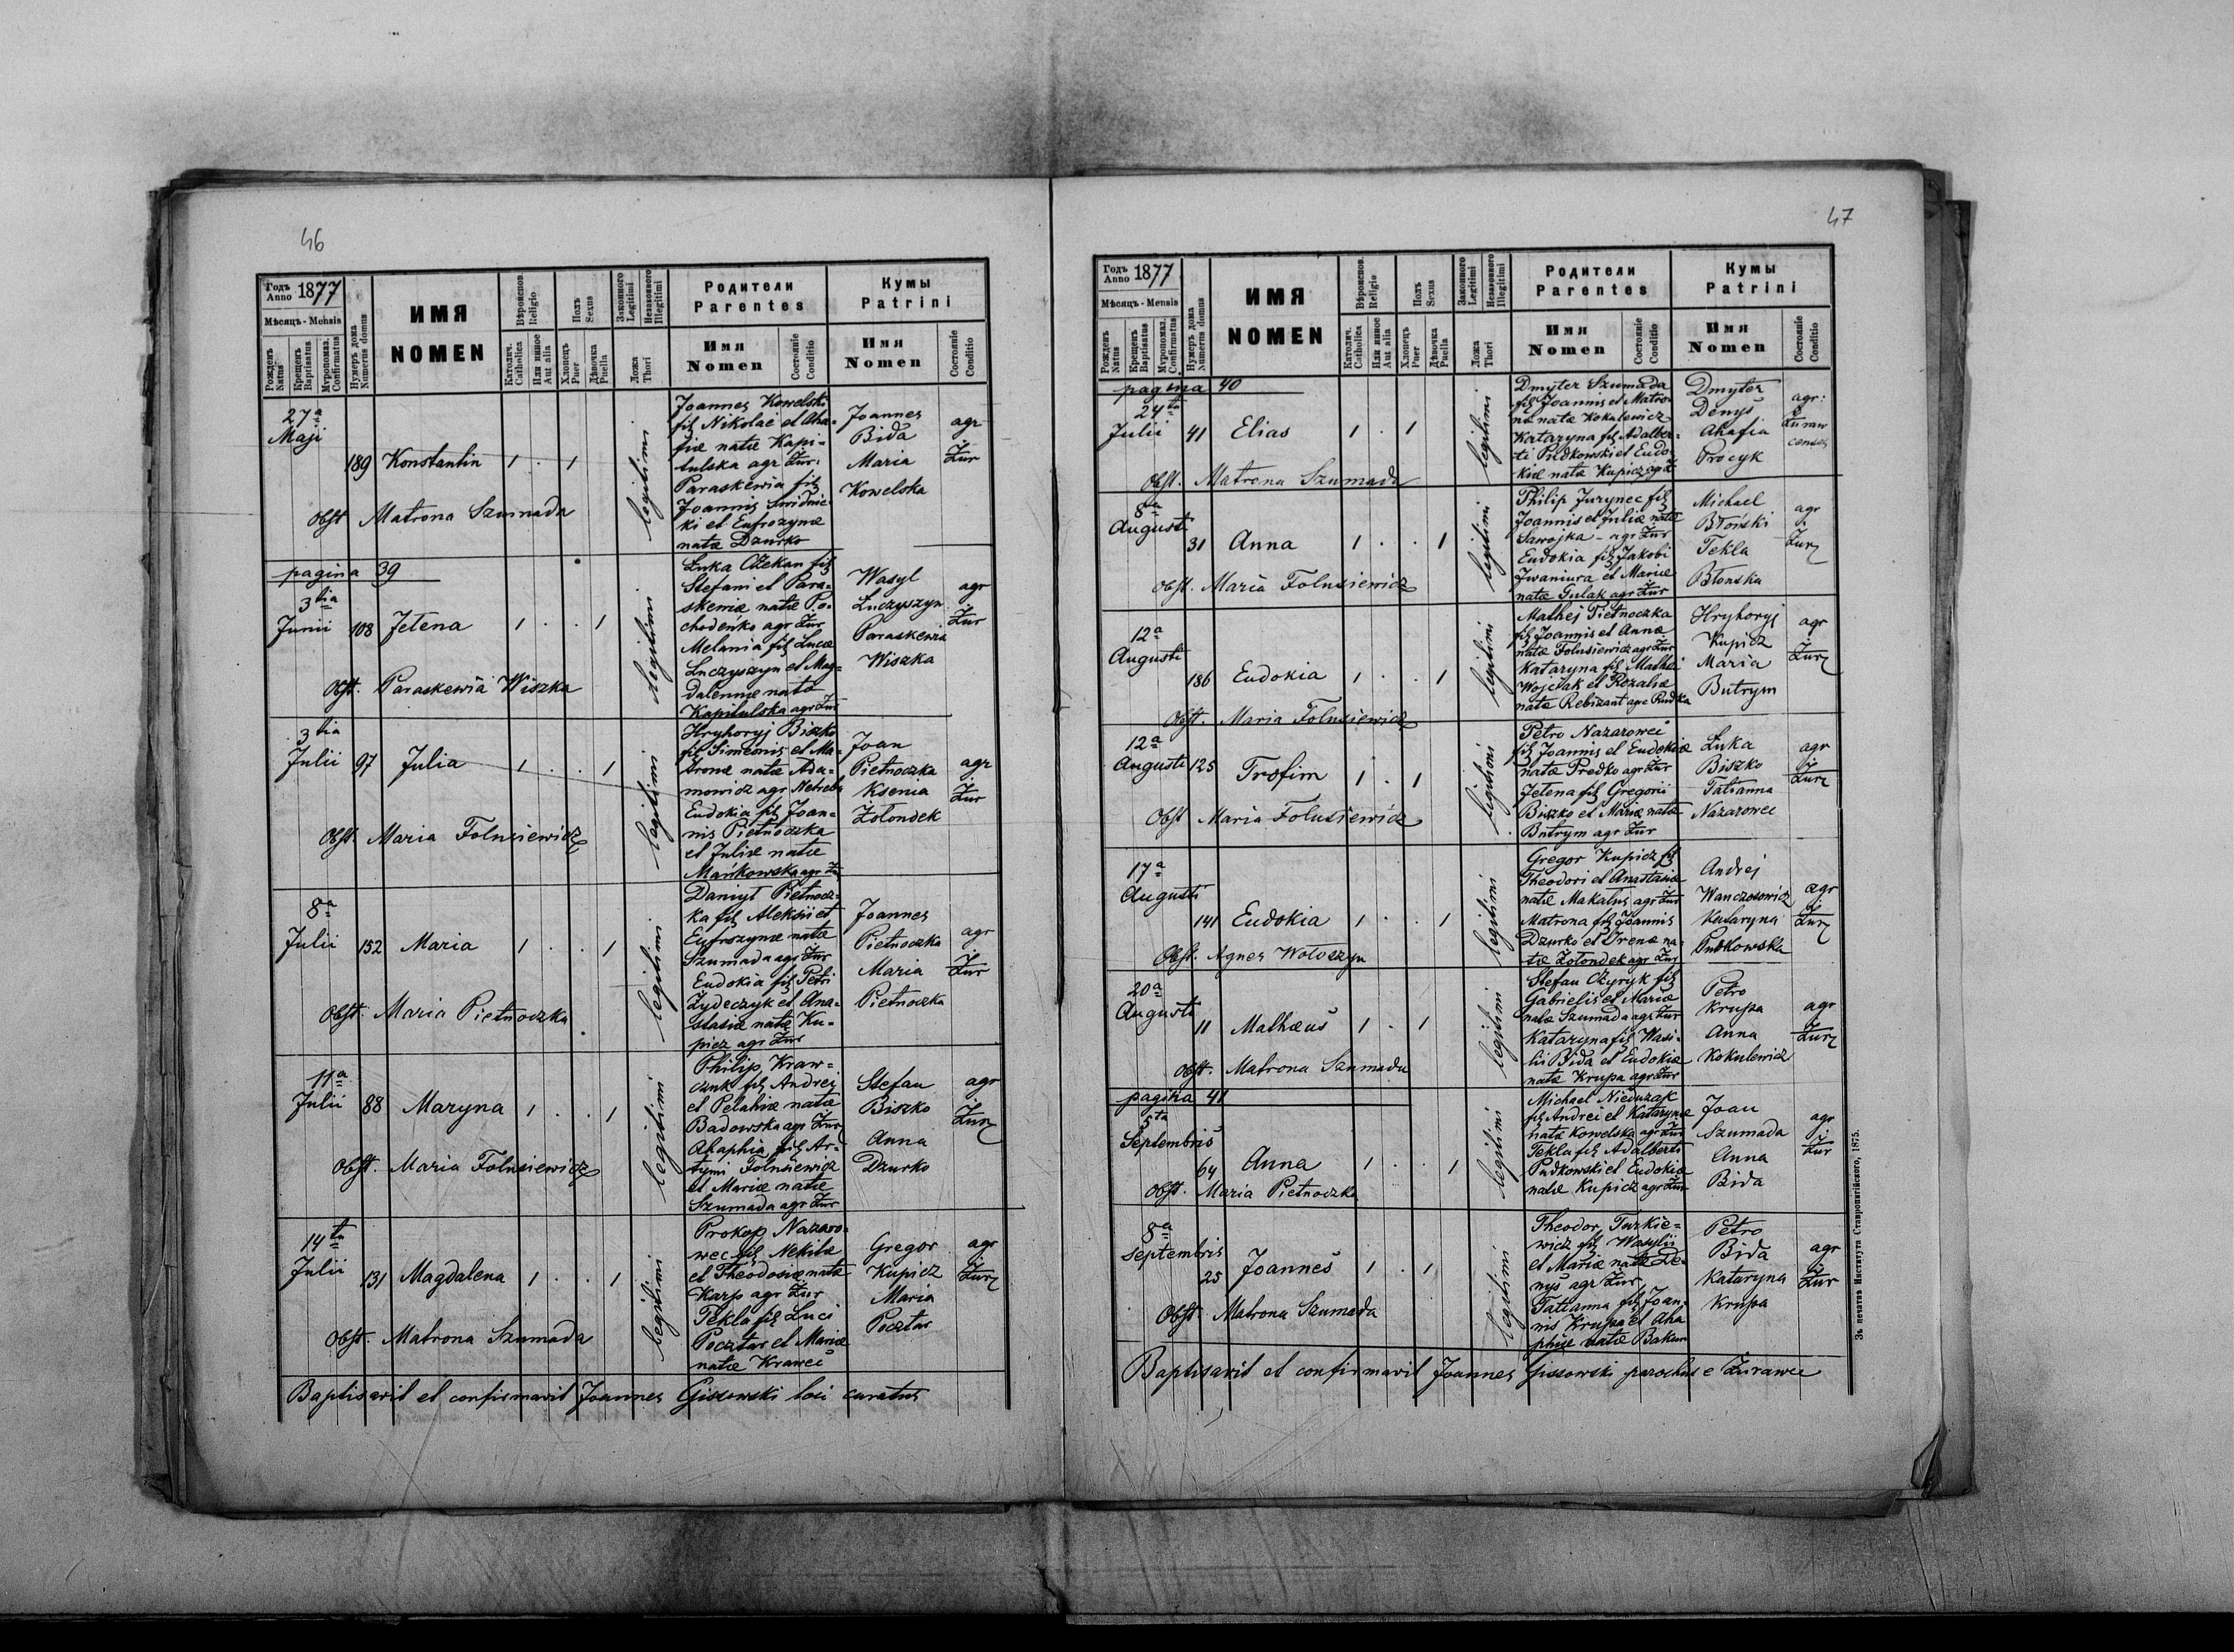 46
Годъ Anno 1877
Мѣсяцъ - Mensis
Рожденъ Natus
Крещенъ Baptisatus
Мѵропомаз. Confirmatus
Нумеръ дома Numerus domus
ИМЯ
NOMEN
Вѣроиспов. Religio
Католич. Catholica
Или иное Aut alia
Полъ Sexus
Хлопецъ Puer
Дѣвочка Puella
Законного Legitimi
Незаконного Illegitimi
Ложа Thori
Родители
Parentes
Имя Nomen
Состояніе Conditio
Кумы
Patrini
Имя Nomen
Состояніе Conditio
27a Maji
189 Konstantin 1 . 1
legitimi
Joannes Kowelski
fil Nikolai et Aha-
fiæ natæ Kapi-
tulska agr Żur:
Paraskewia fil
Joannis Smidnic-
ki et Eufrozynæ
natæ Dzurko
Joannes
Bida
Maria
Kowelska
agr
Żur
Obst Matrona Szumada
pagina 39
3tia Junii
108 Jełena 1 . . 1
legitimi
Łuka Czekan fil
Stefani et Para-
skewiæ natæ Po-
chodeńko agr Żur
Melania fil Lucæ
Łuczyszyn et Mag-
dalennæ nata
Kapitulska agr Żur
Wasyl
Łuczyszyn
Paraskewia
Wiszka
agr
Żur
Obst. Paraskewia Wiszka
3tia Julii
97 Julia 1 . . 1
legitimi
Hryhoryj Biszko
fil Simeonis et Ma-
tronæ natæ Ada-
mowicz agr Netreba
Eudokia fil Joan-
nis Pietnoczka
et Juliæ natæ
Mańkowska agr Żu
Joan
Pietnoczka
Ksenia
Żołondek
agr
Żur
Obst. Maria Folusiewicz
8a Julii
152 Maria 1 . . 1
legitimi
Daniył Pietnocz-
ka fil Aleksii et
Eufrozynæ natæ
Szumada agr Żur
Eudokia fil Petri
Żydeczyk et Ana-
stasiæ natæ Ku-
picz agr Żur
Joannes
Pietnoczka
Maria
Pietnoczka
agr
Żur
Obst. Maria Pietnoczka
11a Julii
88 Maryna 1 . . 1
legitimi
Philip Kraw-
czuk fil Andrei
et Pelahiæ natæ
Badowska agr Żur
Ahaphia fil Ar-
tymi Folusiewicz
et Mariæ natæ
Szumada agr Żur
Stefan
Biszko
Anna
Dzurko
agr
Żur
Obst. Maria Folusiewicz
14ta Julii
131 Magdalena 1 . . 1
legitimi
Prokop Nazaro-
wec fil Nekita
et Theodosiæ natæ
Karp agr Żur
Tekla fil Luci
Pocztar et Mariæ
natæ Krawec
Gregor
Kupicz
Maria
Pocztar
agr
Żur
Obst. Matrona Szumada
Baptisavit et confirmavit Joannes Gissowski loci curatus
47
Годъ Anno 1877
Мѣсяцъ - Mensis
Рожденъ Natus
Крещенъ Baptisatus
Мѵропомаз. Confirmatus
Нумеръ дома Numerus domus
ИМЯ
NOMEN
Вѣроиспов. Religio
Католич. Catholica
Или иное Aut alia
Полъ Sexus
Хлопецъ Puer
Дѣвочка Puella
Законного Legitimi
Незаконного Illegitimi
Ложа Thori
Родители
Parentes
Имя Nomen
Состояніе Conditio
Кумы
Patrini
Имя Nomen
Состояніе Conditio
pagina 40
24ta Julii
41 Elias 1 . 1
legitimi
Dmyter Szumada
fil Joannis et Matro-
na natæ Kokulewicz
Kataryna fil Adalber-
ti Pudkowski et Eudo-
kiæ natæ Kupicz agr
Dmyter
Denys
Ahafia
Procyk
agr:
Żuraw
censes
Obst. Matrona Szumada
8va Augusti
31 Anna 1 . . 1
legitimi
Philip Jurynec fil
Joannis et Juliæ natæ
Sawojka - agr Żur
Eudokia fil Jakobi
Iwaniura et Mariæ
natæ Gulak agr Żur
Michael
Błoński
Tekla
Błonska
agr
Żur
Obst. Maria Folusiewicz
12a Augusti
186 Eudokia 1 . . 1
legitimi
Mathej Pietnoczka
fil Joannis et Annæ
natæ Folusiewicz agr Żur
Kataryna fil Mathei
Wojciak et Rozaliæ
natæ Rebizant agr Rudka
Hryhoryj
Kupicz
Maria
Butrym
agr
Żur
Obst. Maria Folusiewicz
12a Augusti
125 Trofim 1 . 1
legitimi
Petro Nazarowec
fil Joannis et Eudokiæ
natæ Predko agr Żur
Jełena fil Gregorii
Biszko et Mariæ natæ
Butrym agr Żur
Łuka
Biszko
Tatianna
Nazarowec
agr
Żur
Obst Maria Folusiewicz
17a Augusti
141 Eudokia 1 . . 1
legitimi
Gregor Kupicz fil
Theodori et Anastasiæ
natæ Makalus agr Żur
Matrona fil Joannis
Dzurko et Irenæ na-
tæ Żołondek agr Żur
Andrej
Wanczosowicz
Kataryna
Pudkowska
agr
Żur
Obst. Agnes Wołoszyn
20a Augusti
11 Mathæus 1 . 1
legitimi
Stefan Czyryk fil
Gabrielis et Mariæ
natæ Szumada agr Żur
Kataryna fil Wasi-
lii Bida et Eudokiæ
natæ Krupa agr Żur
Petro
Krupa
Anna
Kokulewicz
agr
Żur
Obst. Matrona Szumada
pagina 41
5ta Septembris
64 Anna 1 . . 1
legitimi
Michael Nieduzak
fil Andrei et Katarynæ
natæ Kowelska agr Żur
Tekla fil Adalberti
Pudkowski et Eudokiæ
natæ Kupicz agr Żur
Joan
Szumada
Anna
Bida
agr
Żur
Obst. Maria Pietnoczka
8a Septembris
25 Joannes 1 . 1
legitimi
Theodor Turkie-
wicz fil Wasylii
et Mariæ natæ De-
nys agr Żur
Tatianna fil Joan-
nis Krupa et Aha
phiæ natæ Bakun
Petro
Bida
Kataryna
Krupa
agr
Żur
Obst. Matrona Szumada
Baptisavit et confirmavit Joannes Gissowski parochus e Żurawce
Зъ печатнѣ Института Ставропигійского, 1875.